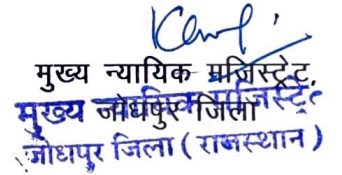 मुख्य न्यायिक मजिस्ट्रेट,
जोधपुर जिला
मुख्य न्यायिक मजिस्ट्रेट
जोधपुर जिला ( राजस्थान )